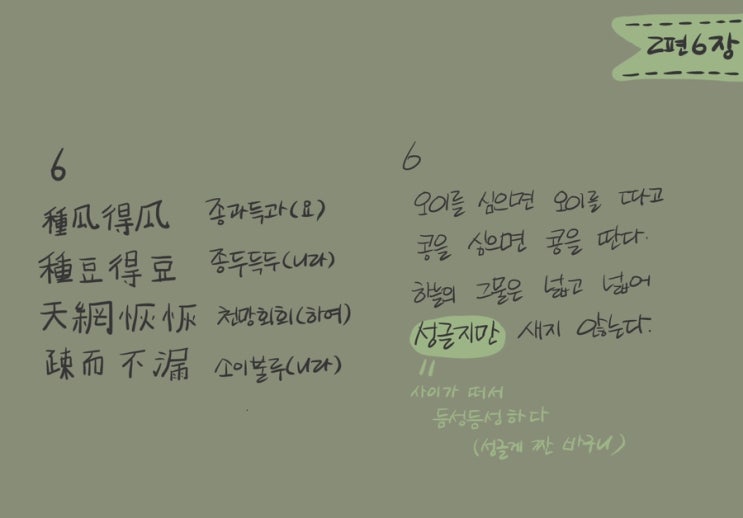 2편6장
6
種瓜得瓜 종과득과(요)
種豆得豆 종두득두(니라)
天網恢恢 천망회회(하여)
疎而不漏 소이불루(니라)
6
오이를 심으면 오이를 따고
콩을 심으면 콩을 딴다.
하늘의 그물은 넓고 넓어
성글지만 새지 않는다.
=
사이가 떠서
듬성듬성하다
(성글게 짠 바구니)